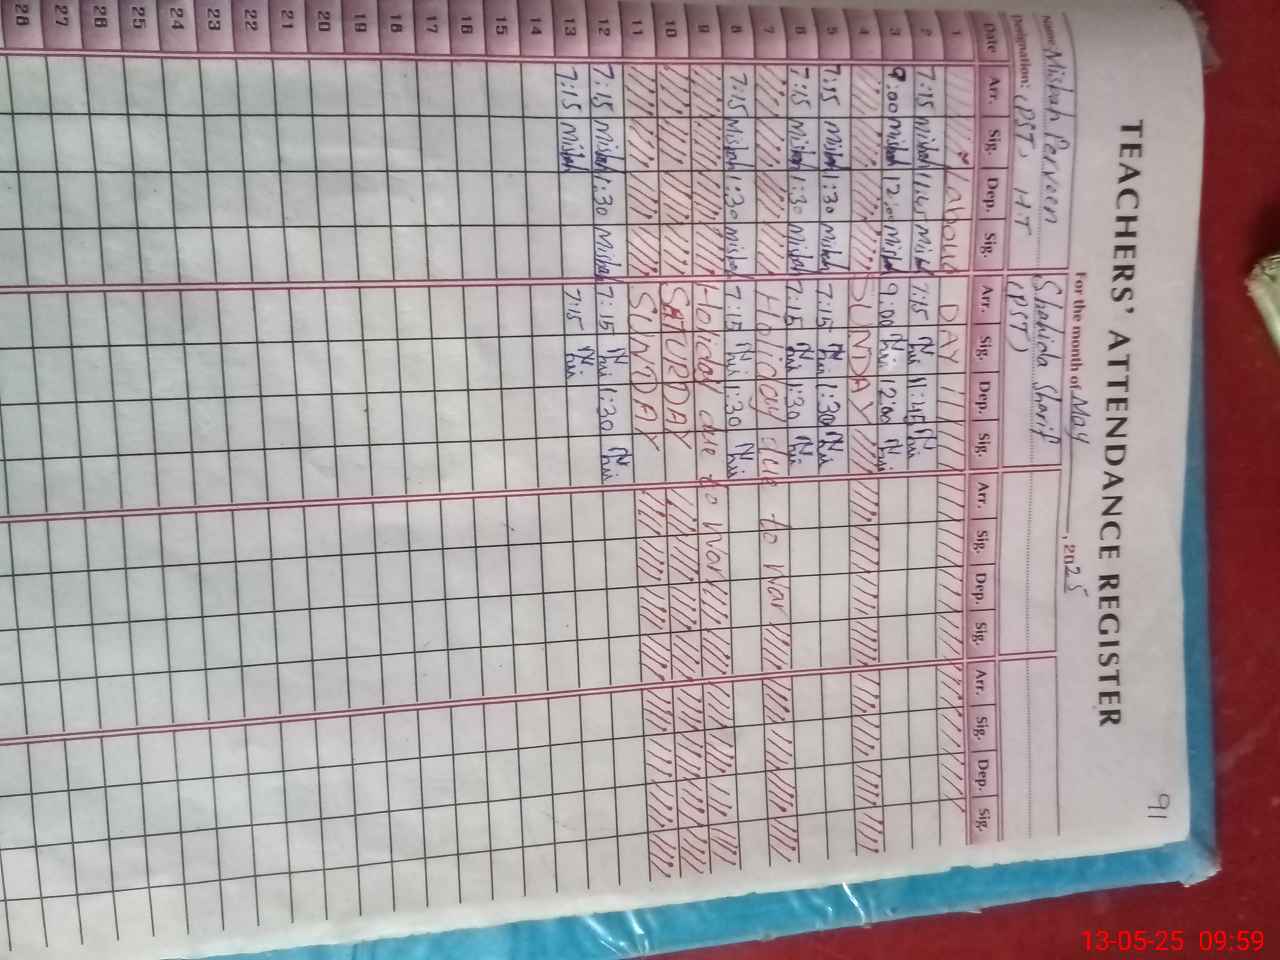 91
TEACHERS' ATTENDANCE REGISTER
For the month of May, 2025
Name: Misbah Perveen Shahida Sharif
Designation: (PST) H.T (PST)
Date Arr. Sig. Dep. Sig. Arr. Sig. Dep. Sig. Arr. Sig. Dep. Sig. Arr. Sig. Dep. Sig.
1 Labour DAY
2 7:15 Misbah 11:45 Misbah 7:15 11:45
3 9:00 Misbah 12:00 Misbah 9:00 12:00
4 SUNDAY
5 7:15 Misbah 1:30 Misbah 7:15 1:30
6 7:15 Misbah 1:30 Misbah 7:15 1:30
7 Holiday due to War
8 7:15 Misbah 1:30 Misbah 7:15 1:30
9 Holiday due to War
10 SATURDAY
11 SUNDAY
12 7:15 Misbah 1:30 Misbah 7:15 1:30
13 7:15 Misbah 7:15
14
15
16
17
18
19
20
21
22
23
24
25
26
27
28
13-05-25 09:59